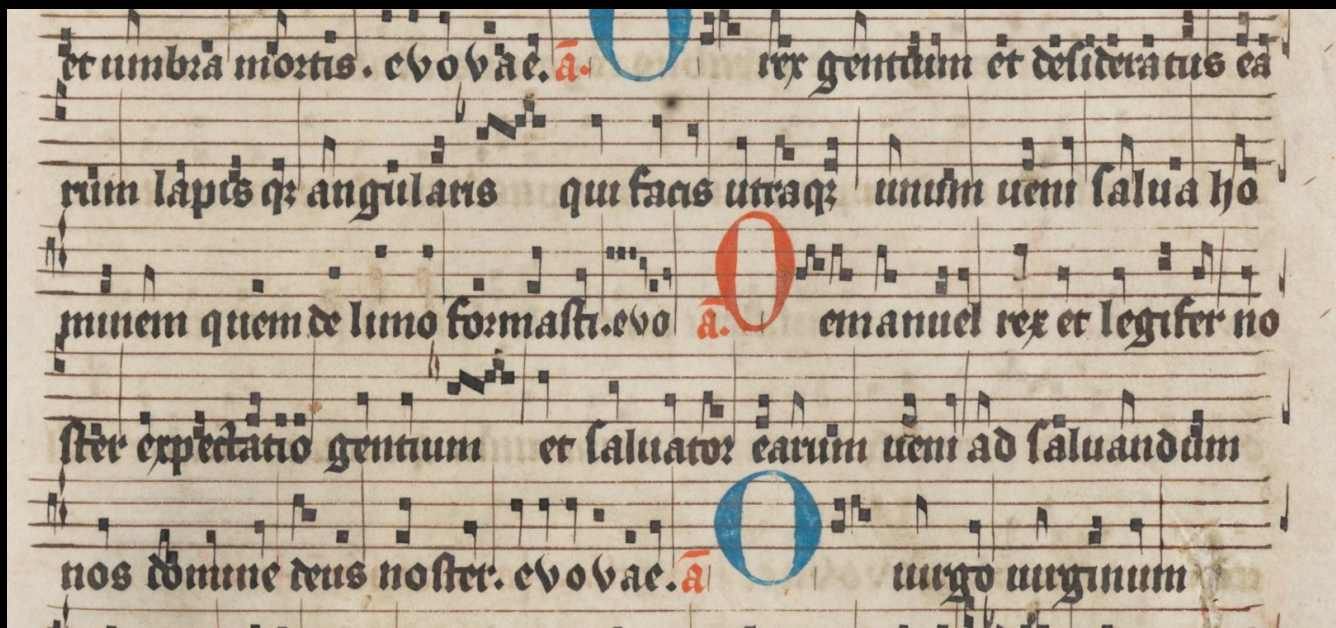 et umbra mortis. evovae. ā. O rex gentium et desideratus ea
rum lapis qꝫ angularis qui facis utraqꝫ unum ueni salua ho
minem quem de limo formasti. evo ā. O emanuel rex et legifer no
ster expectatio gentium et saluator earum ueni ad saluandum
nos domine deus noster. evovae. ā O uirgo uirginum